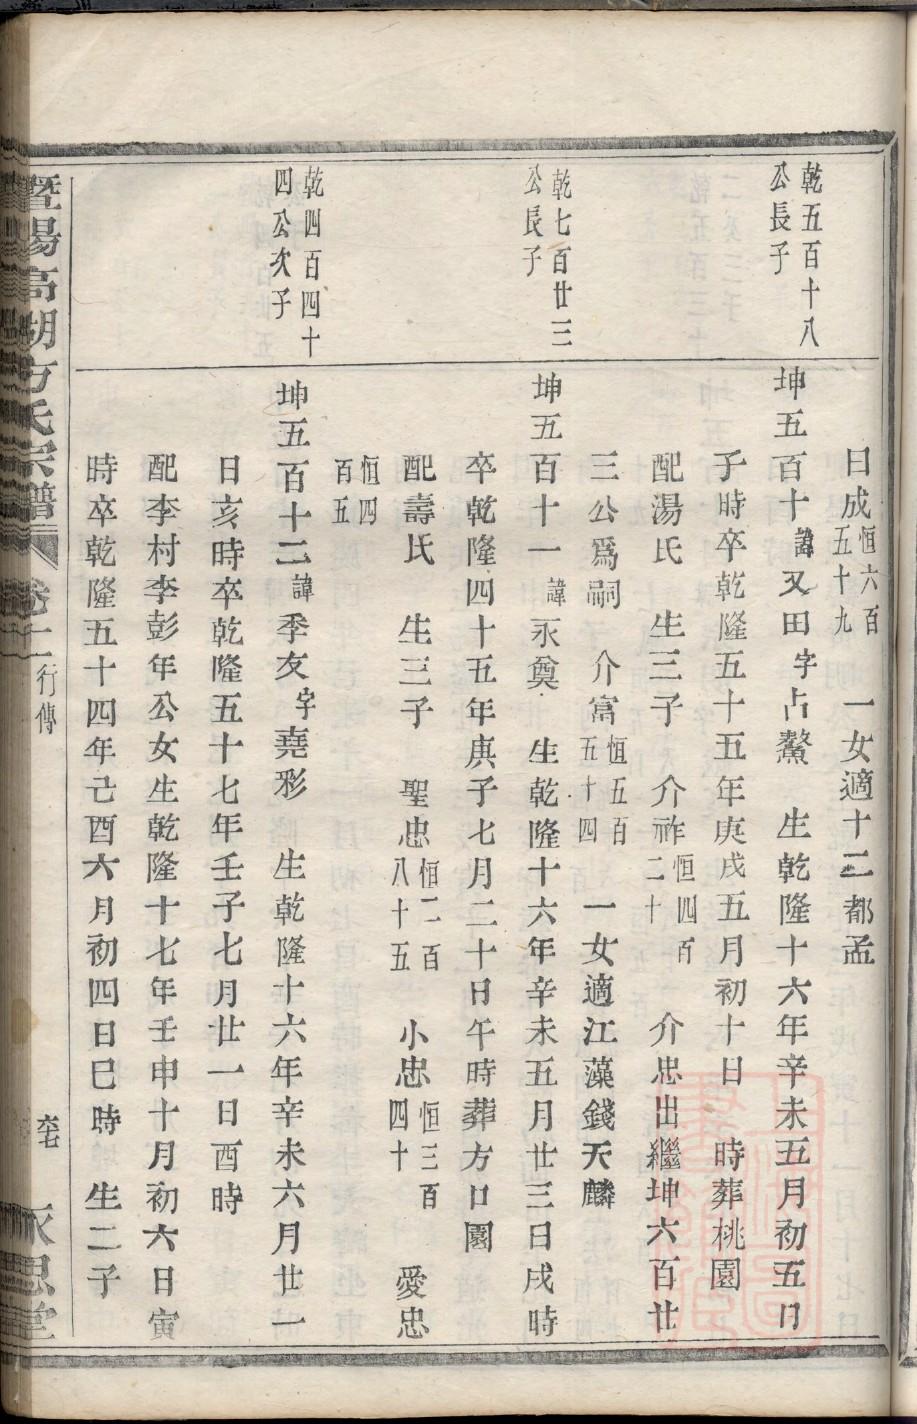 日成恒六百五十九　一女適十二都孟
乾五百十八公長子
坤五百十諱又田字占鰲　生乾隆十六年辛未五月初五日
子時卒乾隆五十五年庚戌五月初十日　時葬桃園
配湯氏　生三子　介祚恒四百二十　介忠出繼坤六百廿
三公爲嗣　介富恒五百五十四　一女適江藻錢天麟
乾七百廿三公長子
坤五百十一諱永奠　生乾隆十六年辛未五月廿三日戌時
卒乾隆四十五年庚子七月二十日午時葬方口園
配壽氏　生三子　聖忠恒二百八十五　小忠恒三百四十　愛忠
恒四百五
乾四百四十四公次子
坤五百十二諱季友字堯彩　生乾隆十六年辛未六月廿一
日亥時卒乾隆五十七年壬子七月廿一日酉時
配李村李彭年公女生乾隆十七年壬申十月初六日寅
時卒乾隆五十四年己酉六月初四日巳時　生二子
暨陽高湖方氏宗譜　卷二　行傳　永思堂